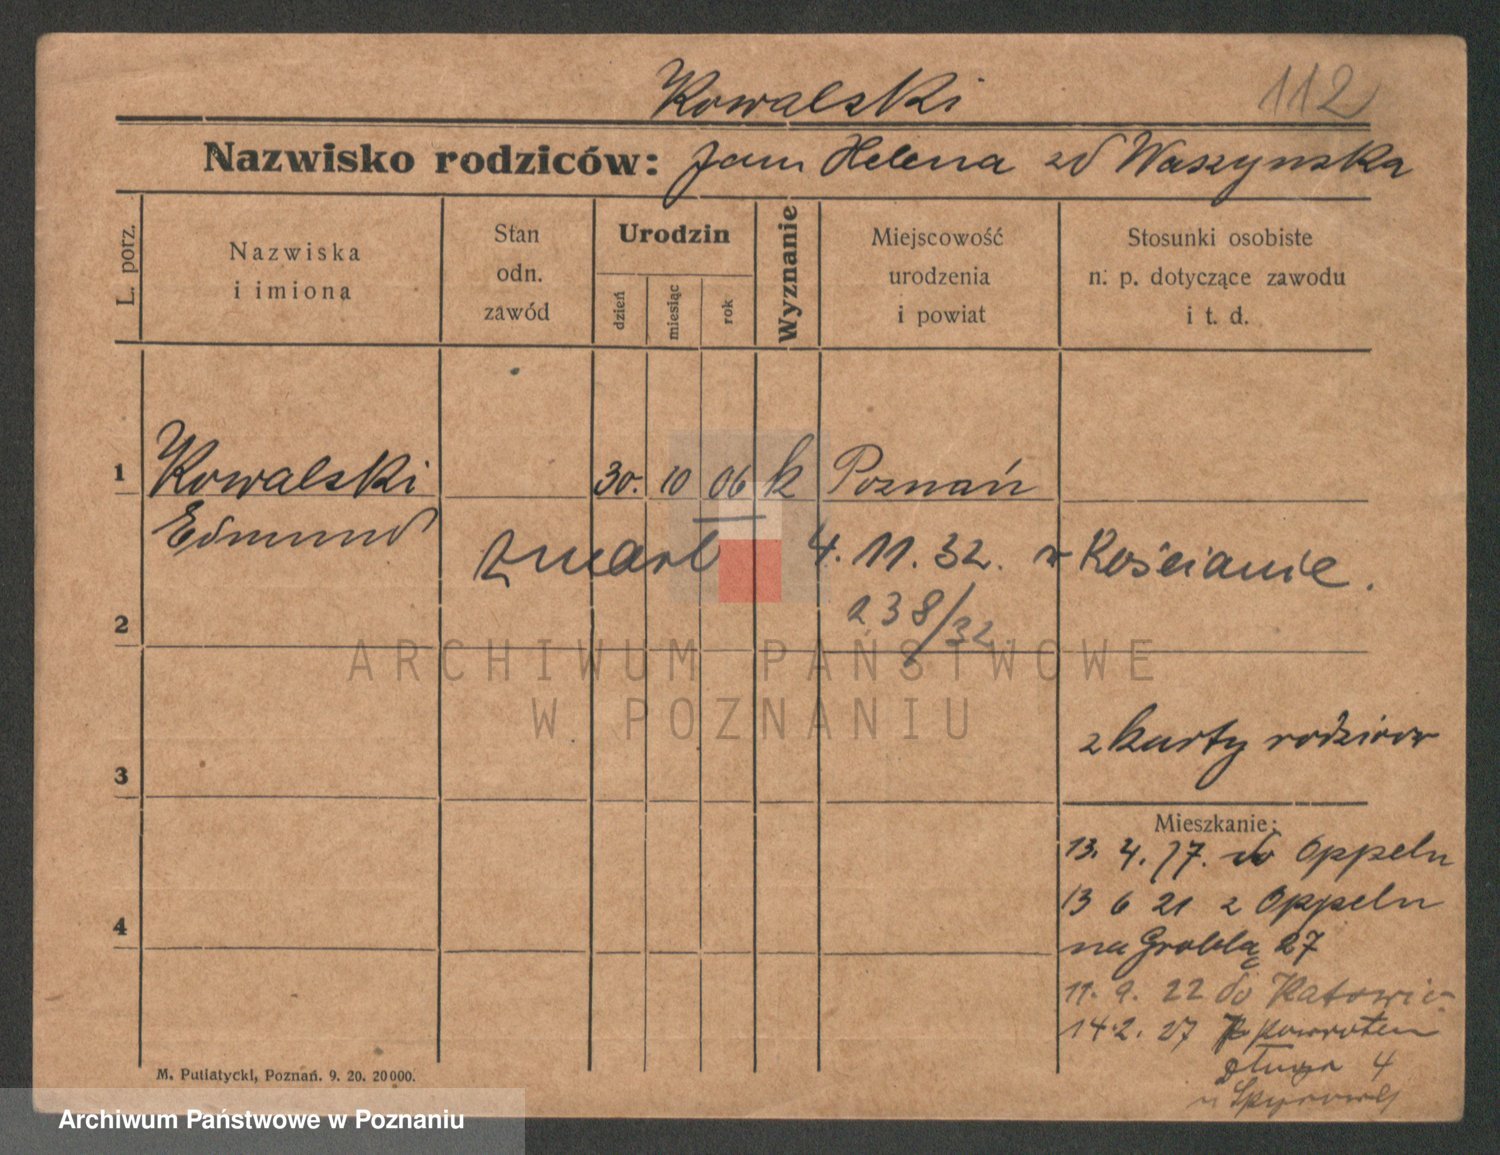 Kowalski 112
Nazwisko rodziców: Jan Helena zd Waszynska
L. porz.
Nazwiska
i imiona
Stan
odn.
zawód
Urodzin
dzień
miesiąc
rok
Wyznanie
Miejscowość
urodzenia
i powiat
Stosunki osobiste
n. p. dotyczące zawodu
i t. d.
1 Kowalski 30. 10 06 k Poznań
Edmund
zmarł 4. 11. 32. w Kościanie.
2
238/32
ARCHIWUM PAŃSTWOWE
W POZNANIU
z karty rodziców
3
Mieszkanie:
13. 4. 17. do Oppeln
13 6 21 z Oppeln
4
na Groblą 27
11. 9. 22 do Katowic
14.2. 27 powrotem
Długa 4
u
M. Putiatycki, Poznań. 9. 20. 20000.
Archiwum Państwowe w Poznaniu